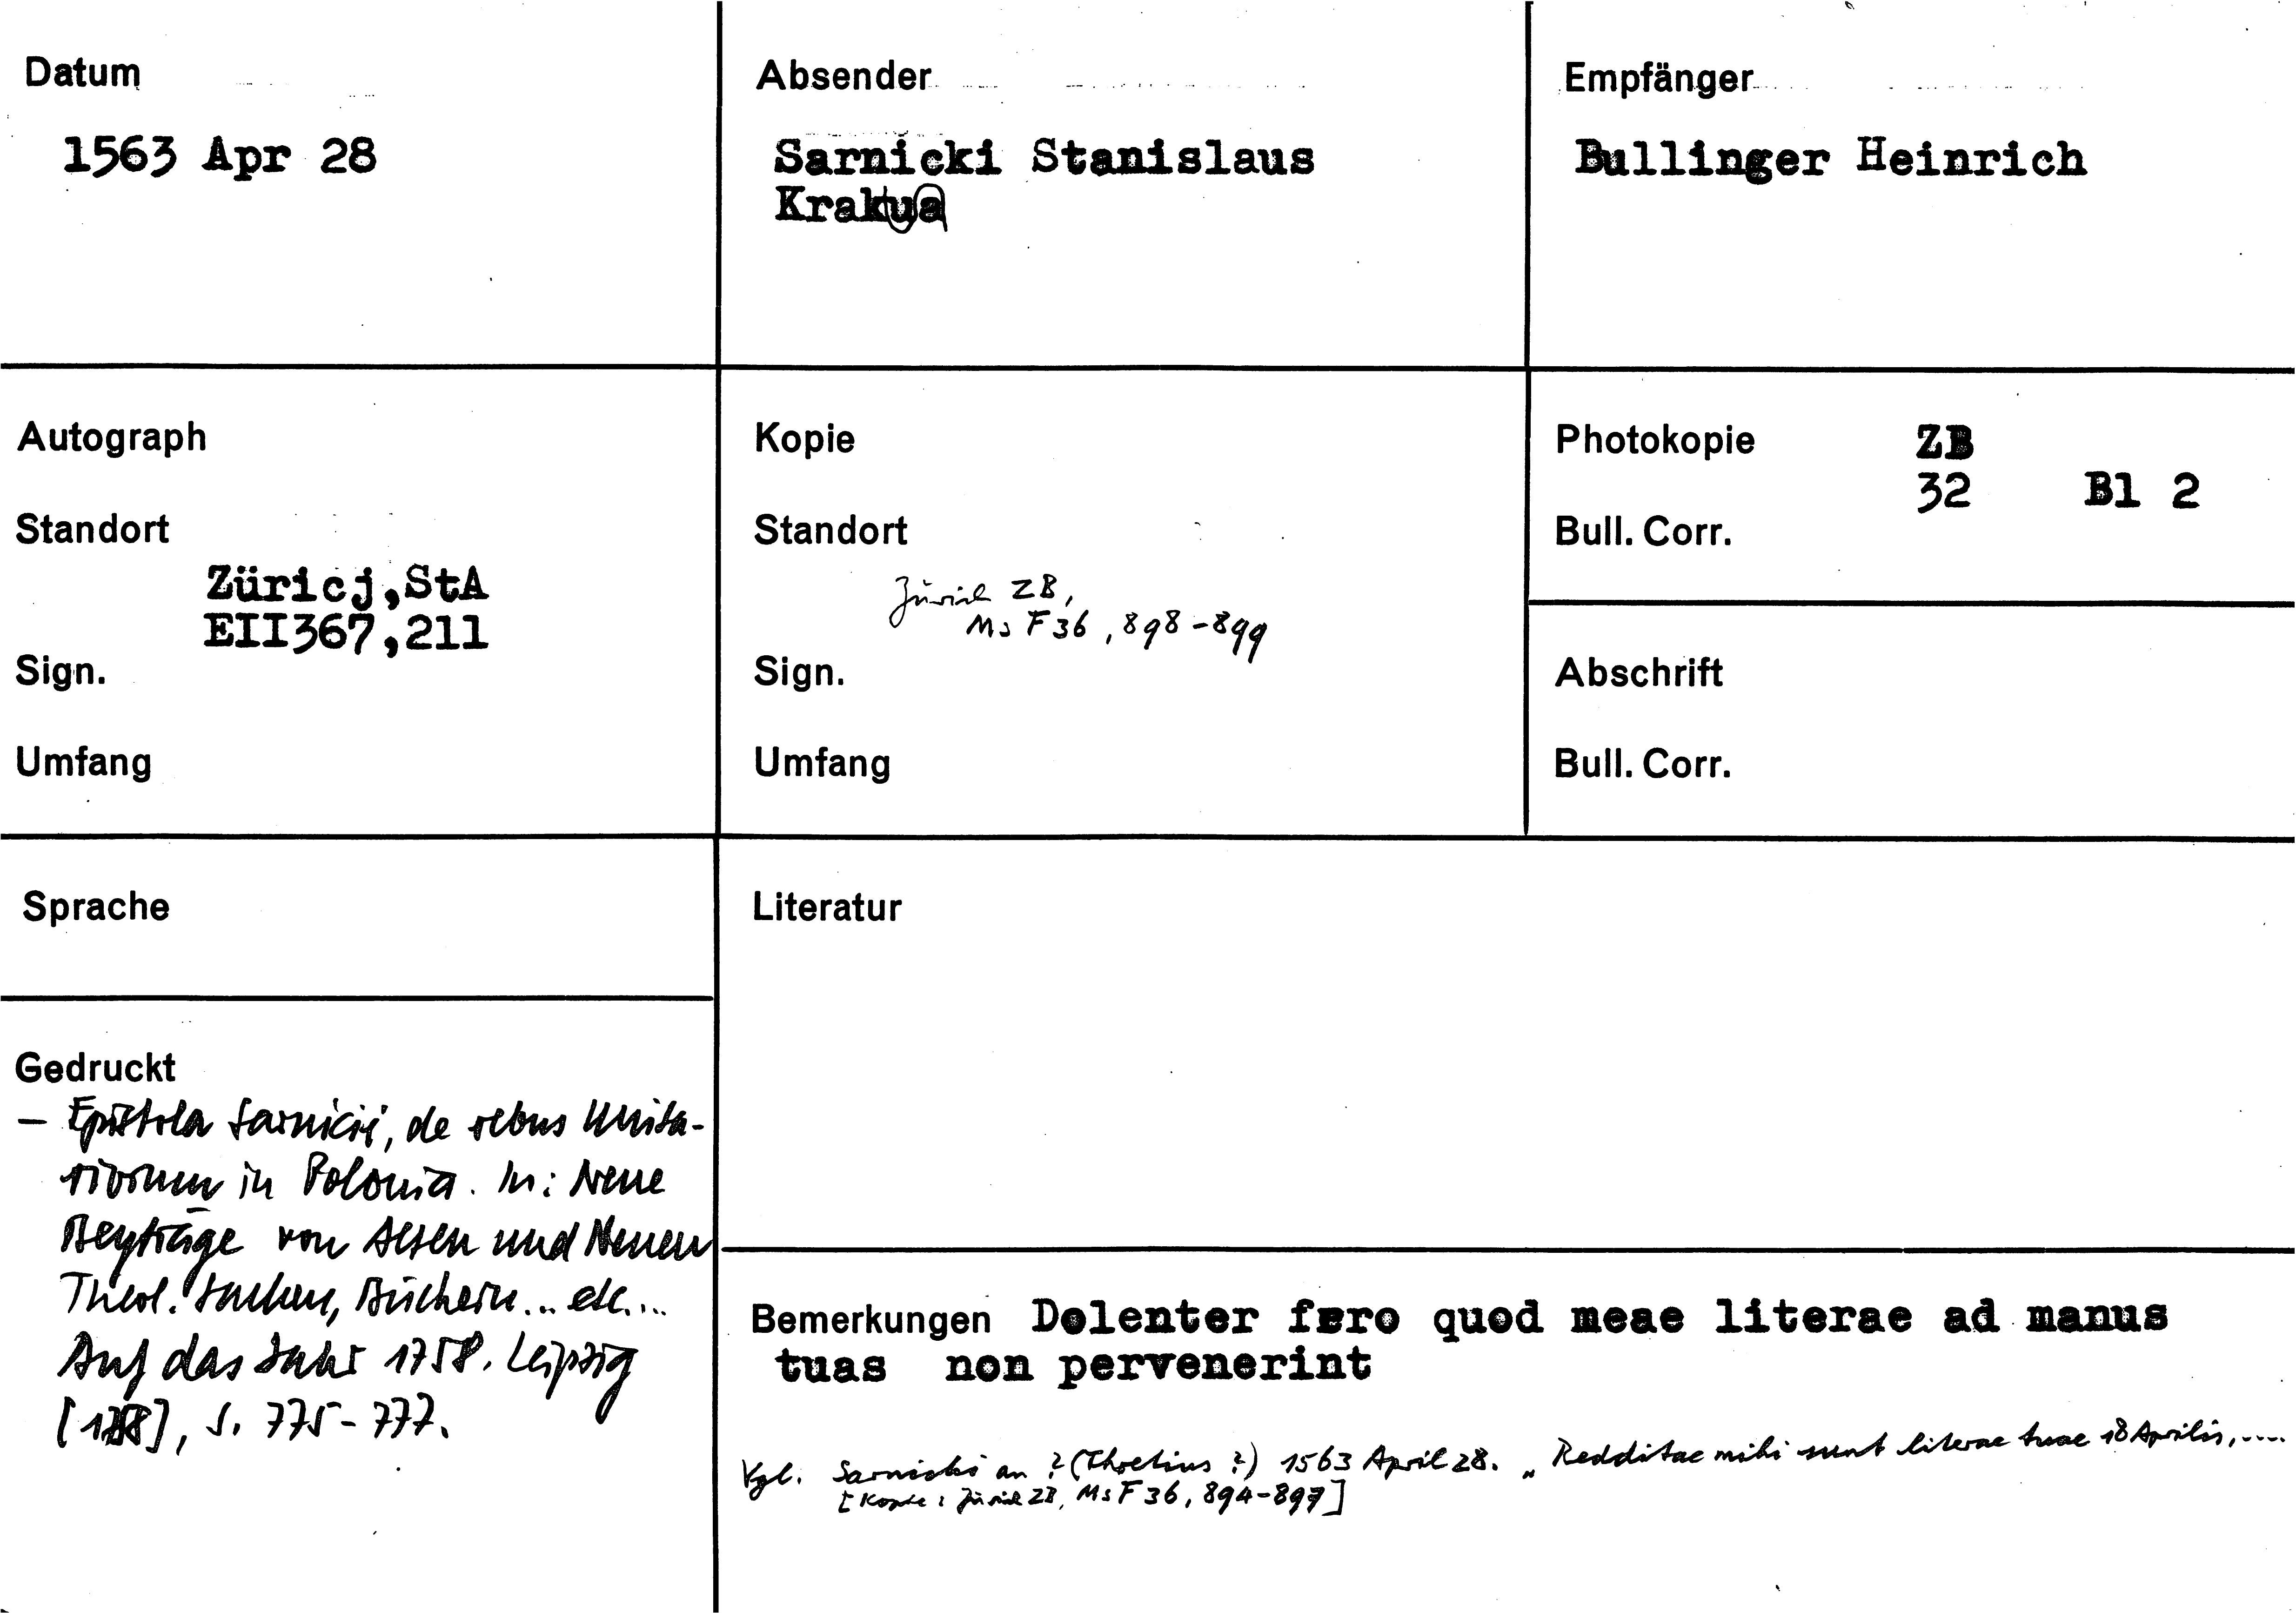 Datum
1563 Apr 28
Absender
Sarnicki Stanislaus
Krakua
Empfänger
Bullinger Heinrich
Autograph
Standort
Züricj,StA
EII367,211
Sign.
Umfang
Kopie
Standort
Zürich ZB,
Ms F 36, 898-899
Sign.
Umfang
Photokopie ZB
32 Bl 2
Bull. Corr.
Abschrift
Bull. Corr.
Sprache
Gedruckt
- Epistola Sarnicii, de rebus Unita-
riorum in Polonia. In: Neue
Beyträge von Alten und Neuen
Theol. Sachen, Büchern... etc...
Auf das Jahr 1758. Leipzig
[1758], S. 775-777.
Literatur
Bemerkungen Dolenter fero quod meae literae ad manus
tuas non pervenerint
Vgl. Sarnicki an ? (Thretius ?) 1563 April 28. „Redditae mihi sunt literae tuae 18 Aprilis,....
[Kopie: Zürich ZB, Ms F 36, 894-897]